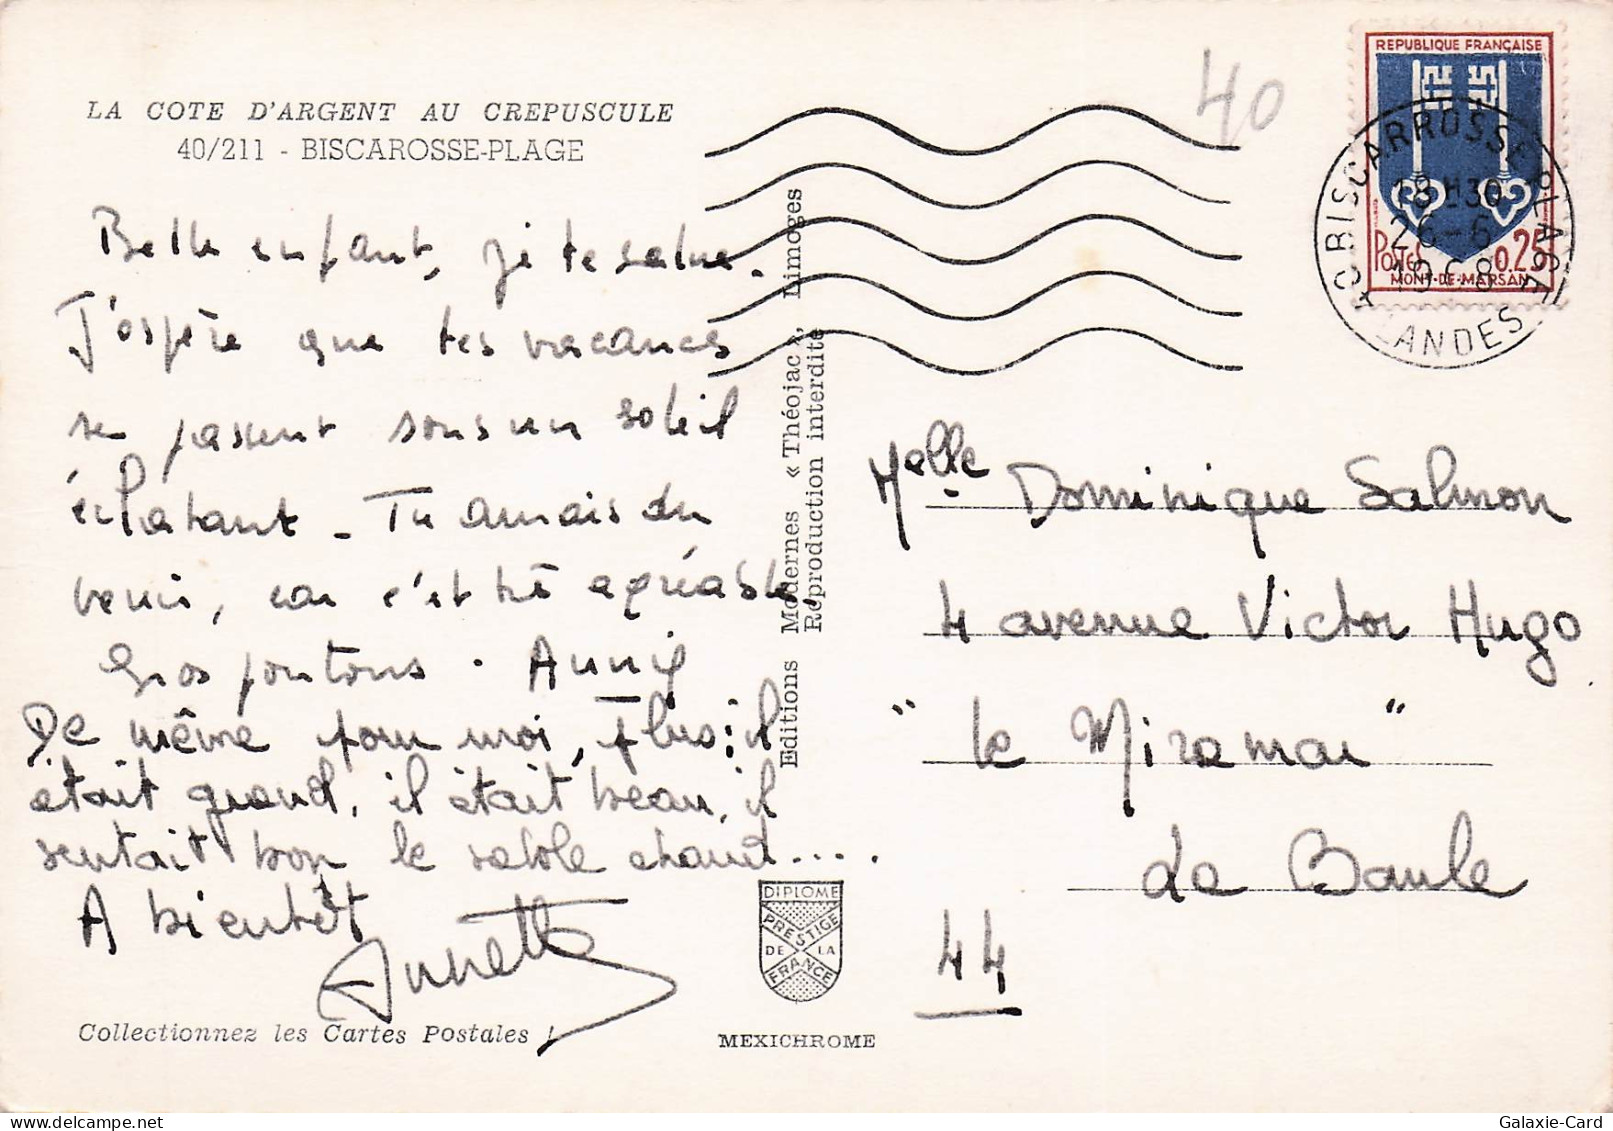 LA COTE D'ARGENT AU CREPUSCULE
40/211 - BISCAROSSE-PLAGE
Belle enfant, je te salue.
J'espère que tes vacances
se passent sous un soleil
éclatant - Tu aurais du
venir, car c'est très agréable.
Gros poutons. Annie
De même pour moi, plus: il
était grand, il était beau, il
sentait bon le sable chaud ....
A bientôt
Annette
Collectionnez les Cartes Postales !
Editions Modernes « Théojac », Limoges
Reproduction interdite
DIPLOME
PRESTIGE
DE LA
FRANCE
MEXICHROME
40
REPUBLIQUE FRANÇAISE
POSTES 0.25
MONT-DE-MARSAN
BISCARROSSE PLAGE
18 H 30
26-6
1968
LANDES
Melle Dominique Salmon
4 avenue Victor Hugo
"le Miramar"
La Baule
44
Galaxie-Card